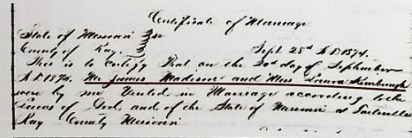 Certificate of Marriage
State of Missouri } ss
County of Ray. } Sept 25th A.D. 1874.
This is to Certify That on the 20d day of September
A.D. 1874. Mr James Madison and Miss Laura Kimbrough
were by me United in Marriage according to the
Laws of God, and of the State of Missouri at
Ray County Missouri